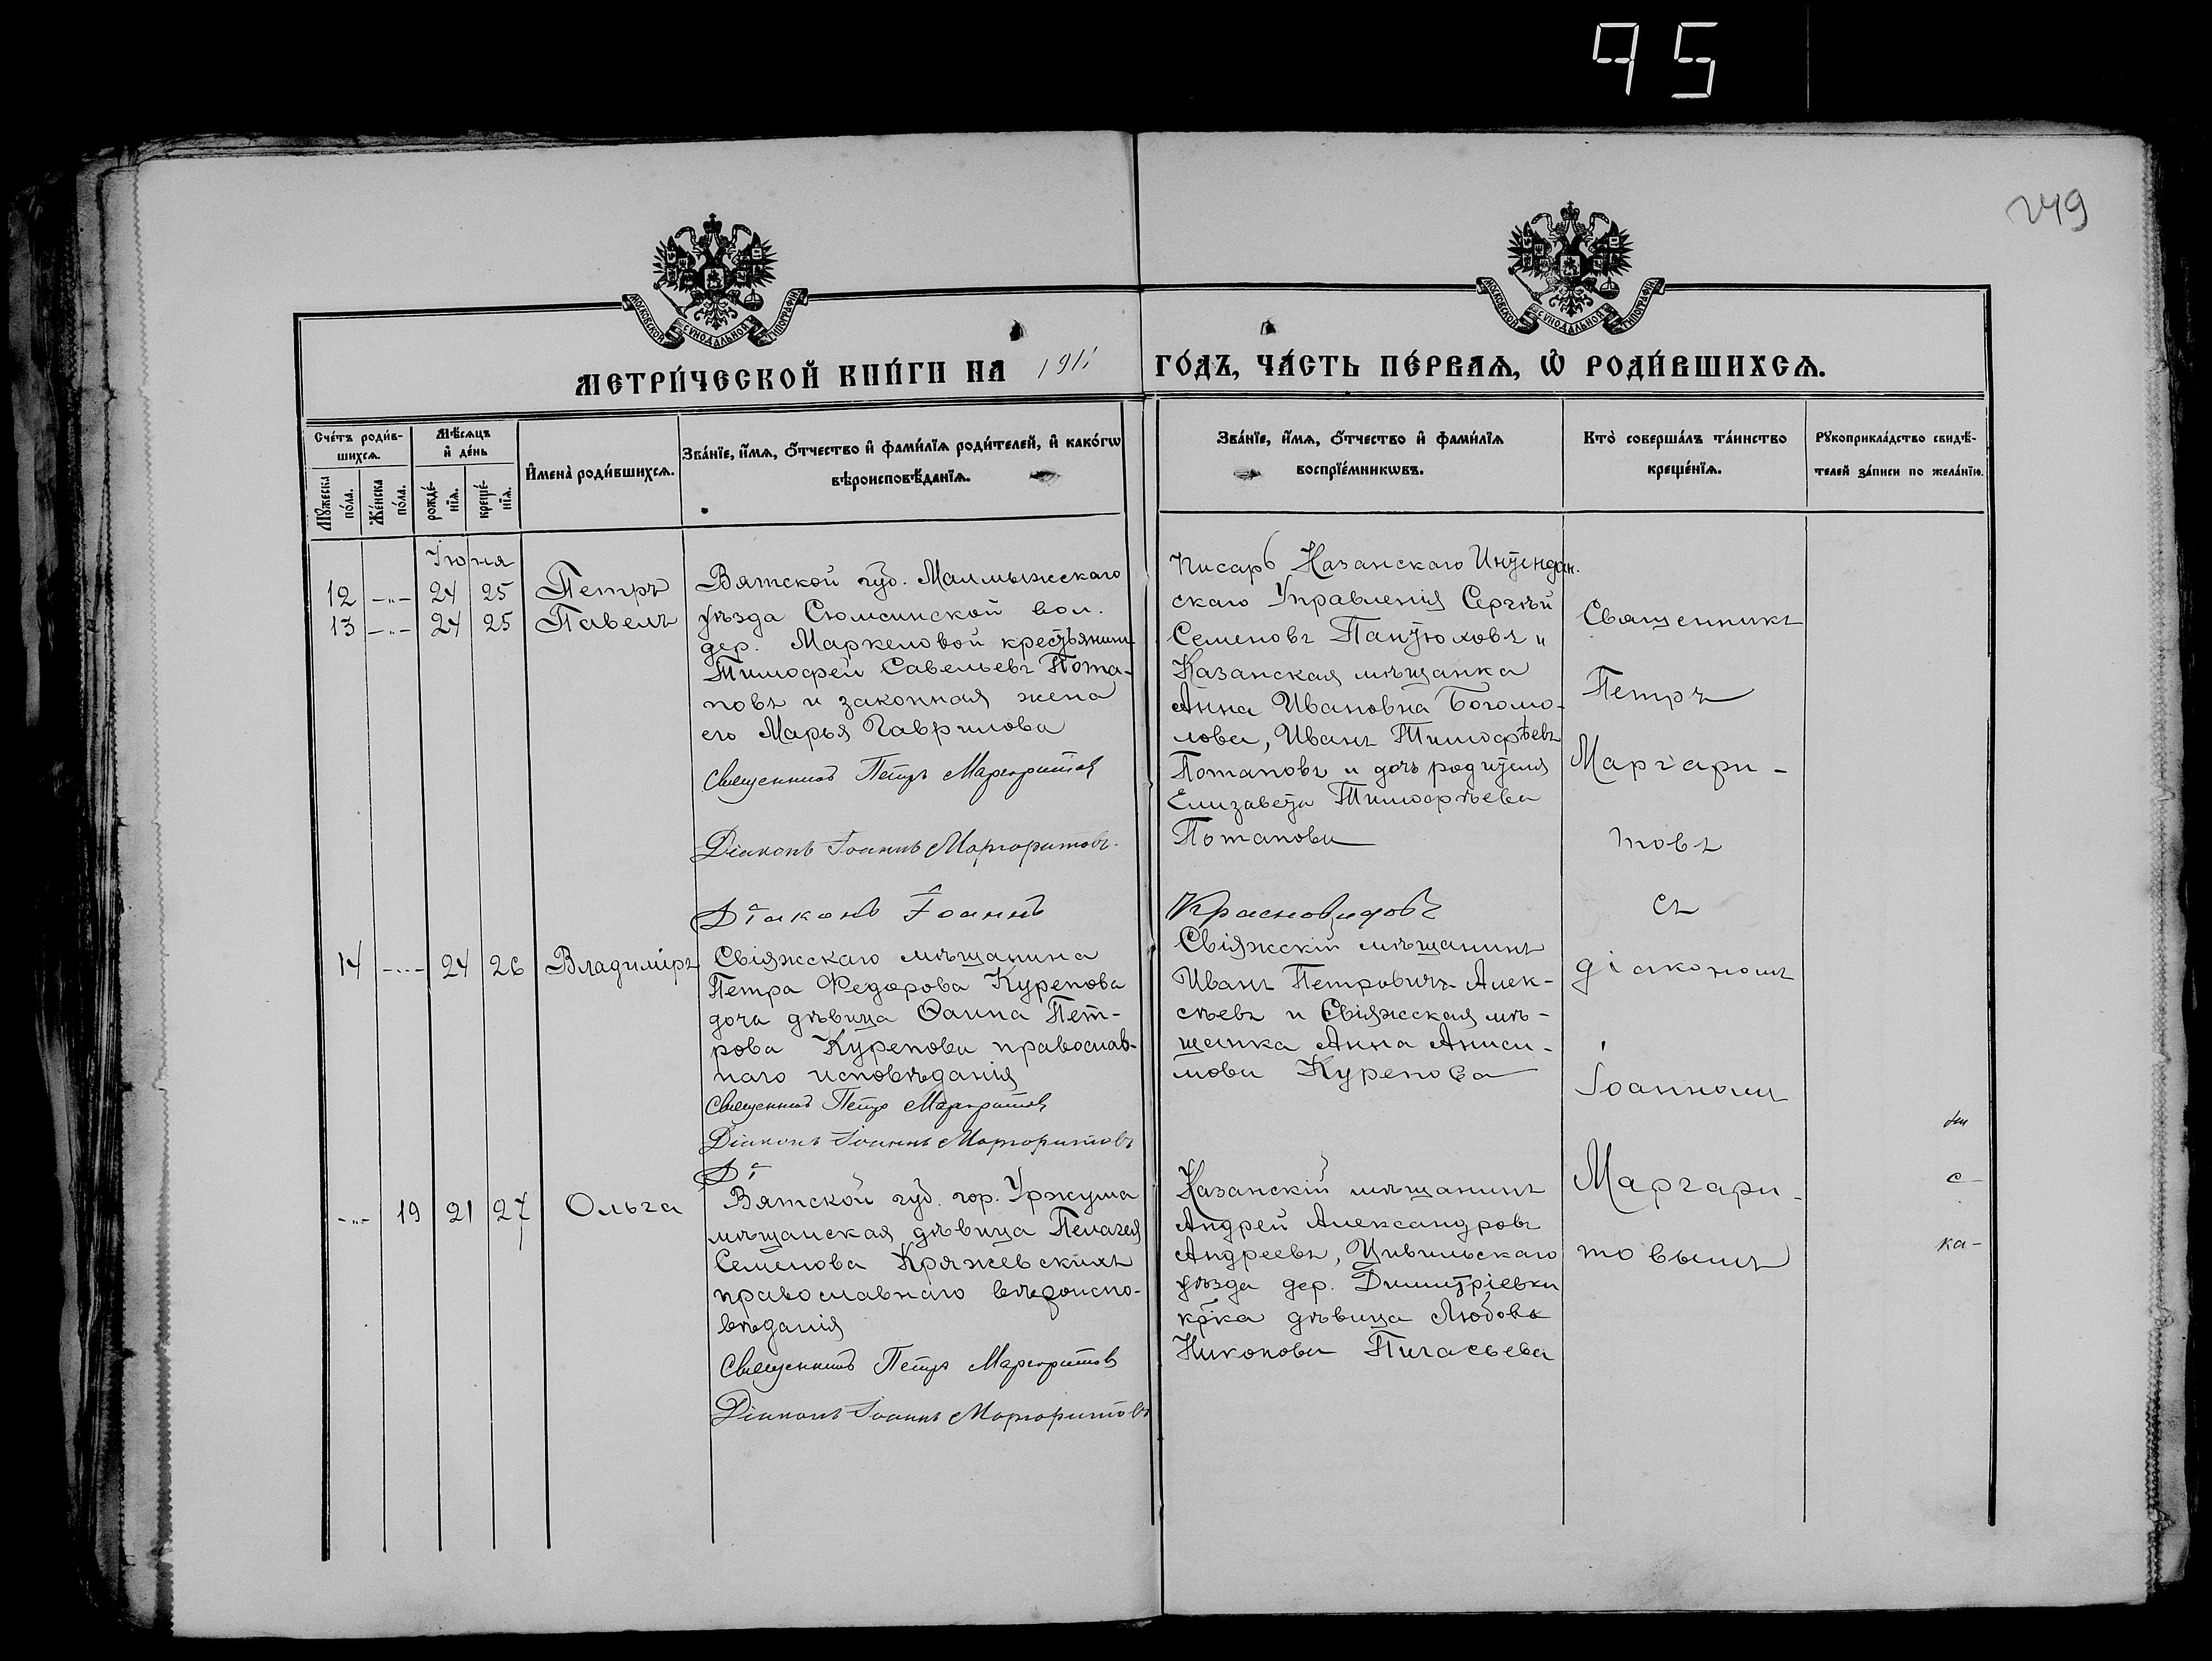 95
249
МОСКОВСКОЙ СѴНОДАЛЬНОЙ ТИПОГРАФІИ
МОСКОВСКОЙ СѴНОДАЛЬНОЙ ТИПОГРАФІИ
МЕТРИ́ЧЕСКОЙ КНИ́ГИ НА 1911 ГО́ДЪ, ЧА́СТЬ ПЕ́РВАѦ, Ѡ҆ РОДИ́ВШИХСѦ.
Сче́тъ роди́в-
шихсѧ.
Мꙋ́жеска по́ла.
Же́нска по́ла.
Мѣ́сѧцъ
и҆ де́нь
рожде́-
нїѧ.
креще́-
нїѧ.
И҆мена̀ роди́вшихсѧ.
Зва́нїе, и҆́мѧ, ѻ҆́тчество и҆ фами́лїѧ роди́телей, и҆ како́гѡ
вѣроисповѣ́данїѧ.
Зва́нїе, и҆́мѧ, ѻ҆́тчество и҆ фами́лїѧ
воспрїе́мникѡвъ.
Кто̀ соверша́лъ та́инство
креще́нїѧ.
Рꙋкоприкла́дство свидѣ́-
телей за́писи по жела́нїю.
Іюня
12 -"- 24 25 Петръ
13 -"- 24 25 Павелъ
Вятской губ. Малмыжскаго
уѣзда Сюмсинской вол.
дер. Маркеловой крестьянинъ
Тимофей Савельевъ Пота-
повъ и законная жена
его Марья Гаврилова
Священникъ Петръ Маргаритовъ
Діаконъ Іоаннъ Маргаритовъ.
Діаконъ Іоаннъ
Писарь Казанскаго Интендан.
скаго Управленія Сергѣй
Семеновъ Пантюховъ и
Казанская мѣщанка
Анна Ивановна Богомо-
лова, Иванъ Тимофѣевъ
Потаповъ и дочь родителя
Елизавета Тимофѣева
Потапова
Красновидовъ
Священникъ
Петръ
Маргари-
товъ
съ
діакономъ
Іоанномъ
Маргари-
товымъ
14 -"- 24 26 Владиміръ
Свіяжскаго мѣщанина
Петра Федорова Курепова
дочь дѣвица Ѳаина Пет-
рова Курепова православ-
наго исповѣданія
Священникъ Петръ Маргаритовъ
Діаконъ Іоаннъ Маргаритовъ
Ді
Свіяжскій мѣщанинъ
Иванъ Петровичъ Алек-
сѣевъ и Свіяжская мѣ-
щанка Анна Аниси-
мова Курепова
-"- 19 21 27 Ольга
Вятской губ. гор. Уржума
мѣщанская дѣвица Пелагея
Семенова Кряжевскихъ
православнаго вѣроиспо-
вѣданія
Священникъ Петръ Маргаритовъ
Діаконъ Іоаннъ Маргаритовъ
Казанскій мѣщанинъ
Андрей Александровъ
Андреевъ, Цивильскаго
уѣзда дер. Димитріевки
кр-ка дѣвица Любовь
Никонова Пигасьева
с-
ка-